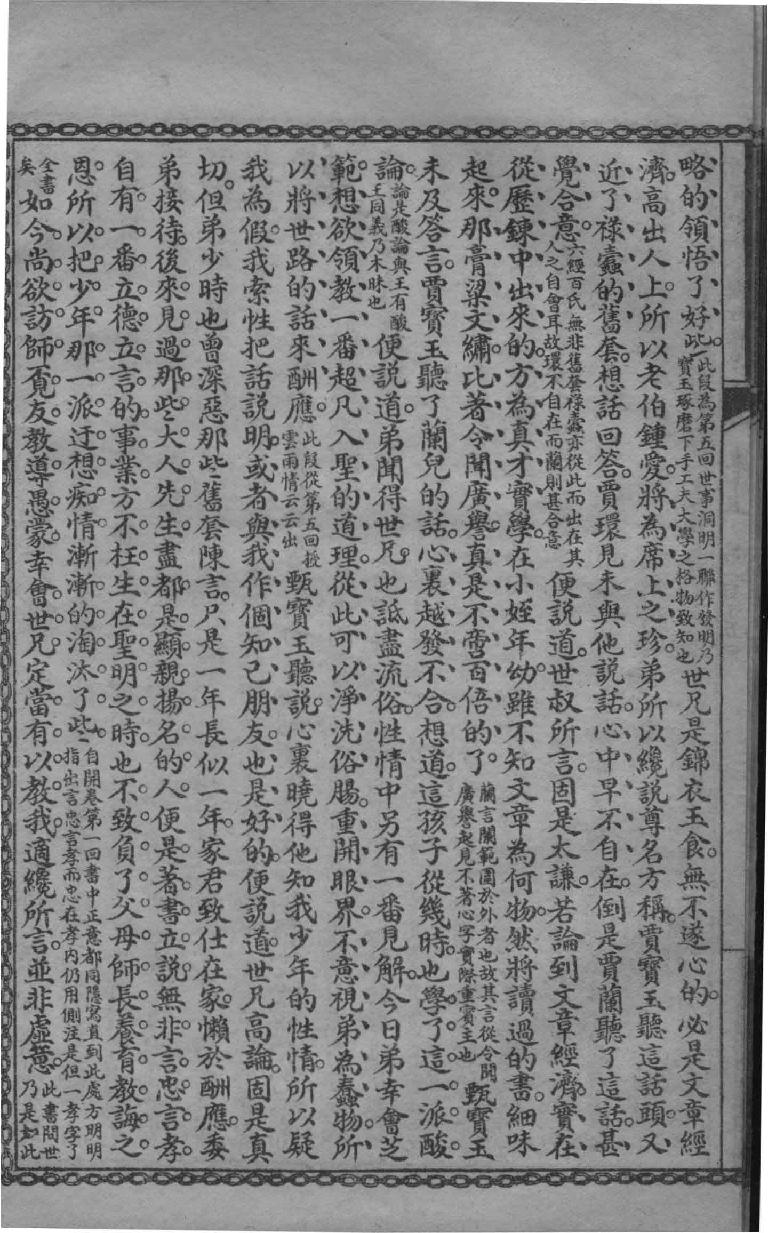 略的領悟了好些此段為第五回世事洞明一聯作發明乃寶玉琢磨下手工夫大學之格物致知也世兄是錦衣玉食無不遂心的必是文章經
濟高出人上所以老伯鍾愛將為席上之珍弟所以纔說尊名方稱賈寶玉聽這話頭又
近了祿蠹的舊套想話回答賈環見未與他說話心中早不自在倒是賈蘭聽了這話甚
覺合意六經百氏無非舊套祿蠹亦從此而出在其人之自會耳故環不自在而蘭則甚合意便說道世叔所言固是太謙若論到文章經濟實在
從歷鍊中出來的方為真才實學在小姪年幼雖不知文章為何物然將讀過的書細味
起來那膏粱文繡比著令聞廣譽真是不啻百倍的了蘭言闌範圍於外者也故其言從令聞廣譽起見不著心字實際重寶玉也甄寶玉
未及答言賈寶玉聽了蘭兒的話心裏越發不合想道這孩子從幾時也學了這一派酸
論論是酸論與王有酸王同義乃木昧也便說道弟聞得世兄也詆盡流俗性情中另有一番見解今日弟幸會芝
範想欲領教一番超凡入聖的道理從此可以淨洗俗腸重開眼界不意視弟為蠢物所
以將世路的話來酬應此段從第五回授雲雨情云云出甄寶玉聽說心裏曉得他知我少年的性情所以疑
我為假我索性把話說明或者與我作個知己朋友也是好的便說道世兄高論固是真
切但弟少時也曾深惡那些舊套陳言只是一年長似一年家君致仕在家懶於酬應委
弟接待後來見過那些大人先生盡都是顯親揚名的人便是著書立說無非言忠言孝
自有一番立德立言的事業方不枉生在聖明之時也不致負了父母師長養育教誨之
恩所以把少年那一派迂想痴情漸漸的淘汰了些自開卷第一回書中正意都同隱寫直到此處方明明指出言忠言孝而忠在孝內仍用側注是但一孝字了
全書矣如今尚欲訪師覓友教導愚蒙幸會世兄定當有以教我適纔所言並非虛意此書問世乃是如此